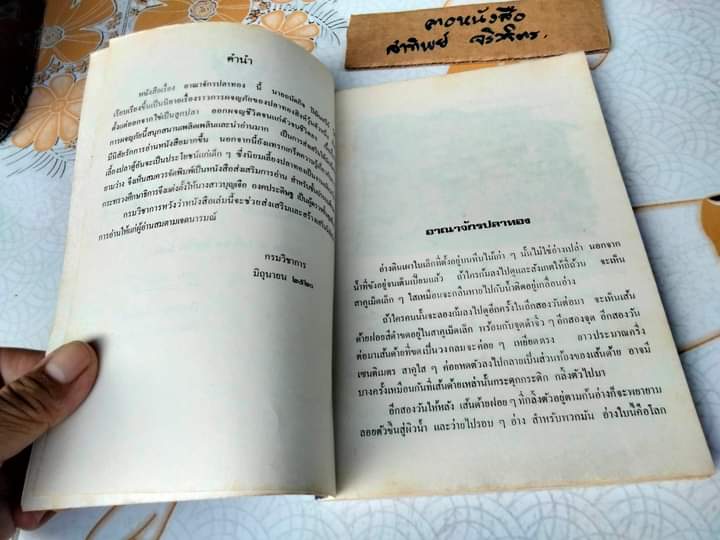 ดาวหนังสือ
สาทิพย์
คำนำ
หนังสือเรื่อง อาณาจักรปลาทอง นี้
เรียบเรียงขึ้นเป็นนิยายเรื่องราวการผจญภัยของปลาทอง
ตั้งแต่ออกจากไข่เป็นลูกปลา ออกผจญชีวิตจนแก่
การผจญภัยนี้สนุกสนานเพลิดเพลินและน่าอ่านมาก เป็นการส่งเสริมให้
มีนิสัยรักการอ่านหนังสือมากขึ้น นอกจากนี้ยังแทรกเกร็ดความรู้
เลี้ยงปลาตู้อันจะเป็นประโยชน์แก่เด็ก ๆ ซึ่งนิยมเลี้ยงปลาทอง
ยามว่าง จึงเห็นสมควรจัดพิมพ์เป็นหนังสือส่งเสริมการอ่าน สำหรับ
กระทรวงศึกษาธิการจึงแต่งตั้งให้นางสาวบุญเจือ องคประดิษฐ์ เป็น
กรมวิชาการหวังว่าหนังสือเล่มนี้จะช่วยส่งเสริมและสร้าง
การอ่านให้แก่ผู้อ่านสมตามเจตนารมณ์
กรมวิชาการ
มิถุนายน ๒๕๒๐
อาณาจักรปลาทอง
อ่างดินเผาใบเล็กที่ตั้งอยู่บนเก้าอี้ไม้เก่า ๆ นั้นไม่ใช่อ่างเปล่า นอกจาก
น้ำที่ขังอยู่จนเต็มเปี่ยมแล้ว ถ้าใครก้มลงไปดูและสังเกตให้ถี่ถ้วน จะเห็น
สาคูเม็ดเล็ก ๆ ใสเหมือนจะกลืนหายไปกับน้ำติดอยู่เกลื่อนอ่าง
ถ้าใครคนนั้นจะลองก้มลงไปดูอีกครั้งในอีกสองวันต่อมา จะเห็นเส้น
ด้ายฝอยสีดำขดอยู่ในสาคูเม็ดเล็ก ๆ พร้อมกับจุดดำจิ๋ว ๆ อีกสองจุด อีกสองวัน
ต่อมาเส้นด้ายที่ขดเป็นวงกลมจะค่อย ๆ เหยียดตรง ยาวประมาณครึ่ง
เซนติเมตร สาคูใส ๆ ค่อยหดตัวลงไปกลายเป็นส่วนท้องของเส้นด้าย อาจมี
บางครั้งเหมือนกันที่เส้นด้ายเหล่านั้นกระตุกกระดิก กลิ้งตัวไปมา
อีกสองวันให้หลัง เส้นด้ายฝอย ๆ ที่กลิ้งตัวอยู่ตามก้นอ่างก็จะพยายาม
ลอยตัวขึ้นสู่ผิวน้ำ และว่ายไปรอบ ๆ อ่าง สำหรับพวกมัน อ่างใบนี้คือโลก